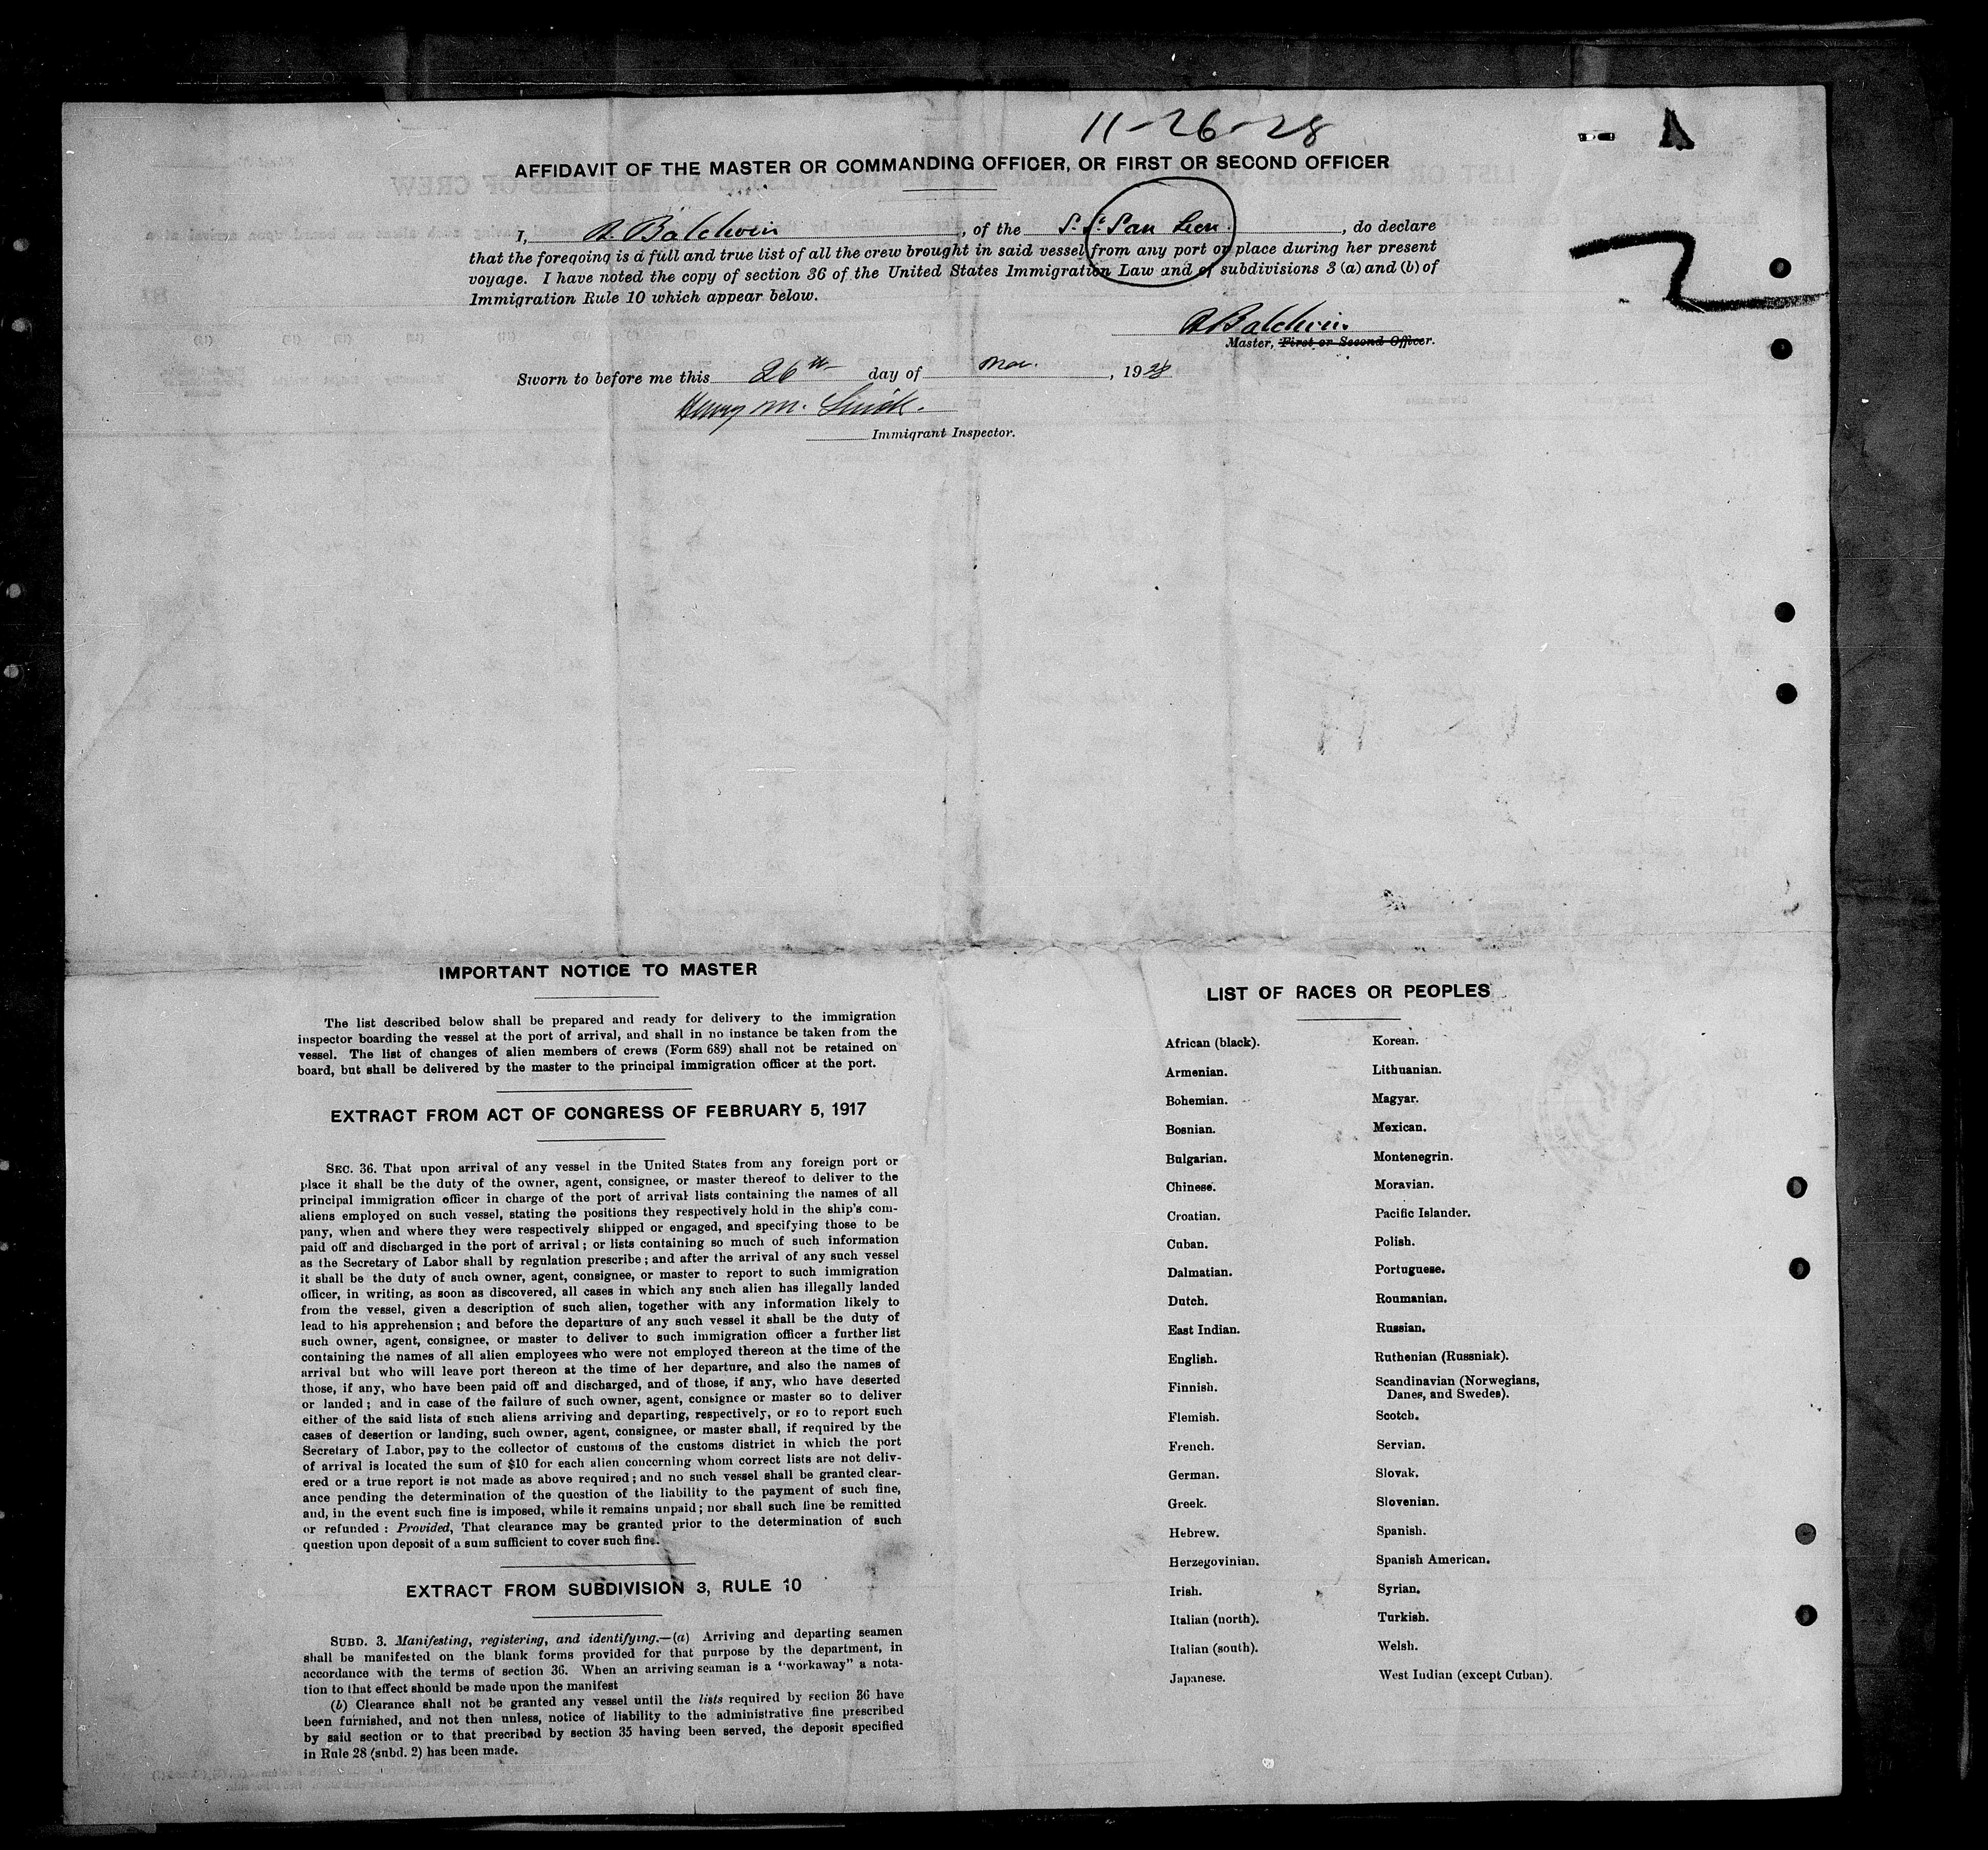 11-26-28
AFFIDAVIT OF THE MASTER OR COMMANDING OFFICER, OR FIRST OR SECOND OFFICER
I, A. Baldwin, of the S.S. San Leon., do declare
that the foregoing is a full and true list of all the crew brought in said vessel from any port or place during her present
voyage. I have noted the copy of section 36 of the United States Immigration Law and of subdivisions 3 (a) and (b) of
Immigration Rule 10 which appear below.
A Baldwin.
Master, First or Second Officer.
Sworn to before me this 26th day of Nov., 1928
Henry M.
Immigrant Inspector.
IMPORTANT NOTICE TO MASTER
The list described below shall be prepared and ready for delivery to the immigration
inspector boarding the vessel at the port of arrival, and shall in no instance be taken from the
vessel. The list of changes of alien members of crews (Form 689) shall not be retained on
board, but shall be delivered by the master to the principal immigration officer at the port.
EXTRACT FROM ACT OF CONGRESS OF FEBRUARY 5, 1917
SEC. 36. That upon arrival of any vessel in the United States from any foreign port or
place it shall be the duty of the owner, agent, consignee, or master thereof to deliver to the
principal immigration officer in charge of the port of arrival lists containing the names of all
aliens employed on such vessel, stating the positions they respectively hold in the ship's com-
pany, when and where they were respectively shipped or engaged, and specifying those to be
paid off and discharged in the port of arrival; or lists containing so much of such information
as the Secretary of Labor shall by regulation prescribe; and after the arrival of any such vessel
it shall be the duty of such owner, agent, consignee, or master to report to such immigration
officer, in writing, as soon as discovered, all cases in which any such alien has illegally landed
from the vessel, given a description of such alien, together with any information likely to
lead to his apprehension; and before the departure of any such vessel it shall be the duty of
such owner, agent, consignee, or master to deliver to such immigration officer a further list
containing the names of all alien employees who were not employed thereon at the time of the
arrival but who will leave port thereon at the time of her departure, and also the names of
those, if any, who have been paid off and discharged, and of those, if any, who have deserted
or landed; and in case of the failure of such owner, agent, consignee or master so to deliver
either of the said lists of such aliens arriving and departing, respectively, or so to report such
cases of desertion or landing, such owner, agent, consignee, or master shall, if required by the
Secretary of Labor, pay to the collector of customs of the customs district in which the port
of arrival is located the sum of $10 for each alien concerning whom correct lists are not deliv-
ered or a true report is not made as above required; and no such vessel shall be granted clear-
ance pending the determination of the question of the liability to the payment of such fine,
and, in the event such fine is imposed, while it remains unpaid; nor shall such fine be remitted
or refunded: Provided, That clearance may be granted prior to the determination of such
question upon deposit of a sum sufficient to cover such fine.
EXTRACT FROM SUBDIVISION 3, RULE 10
SUBD. 3. Manifesting, registering, and identifying.—(a) Arriving and departing seamen
shall be manifested on the blank forms provided for that purpose by the department, in
accordance with the terms of section 36. When an arriving seaman is a "workaway" a nota-
tion to that effect should be made upon the manifest
(b) Clearance shall not be granted any vessel until the lists required by section 36 have
been furnished, and not then unless, notice of liability to the administrative fine prescribed
by said section or to that precribed by section 35 having been served, the deposit specified
in Rule 28 (subd. 2) has been made.
LIST OF RACES OR PEOPLES
African (black).
Armenian.
Bohemian.
Bosnian.
Bulgarian.
Chinese.
Croatian.
Cuban.
Dalmatian.
Dutch.
East Indian.
English.
Finnish.
Flemish.
French.
German.
Greek.
Hebrew.
Herzegovinian.
Irish.
Italian (north).
Italian (south).
Japanese.
Korean.
Lithuanian.
Magyar.
Mexican.
Montenegrin.
Moravian.
Pacific Islander.
Polish.
Portuguese.
Roumanian.
Russian.
Ruthenian (Russniak).
Scandinavian (Norwegians,
Danes, and Swedes).
Scotch.
Servian.
Slovak.
Slovenian.
Spanish.
Spanish American.
Syrian.
Turkish.
Welsh.
West Indian (except Cuban).